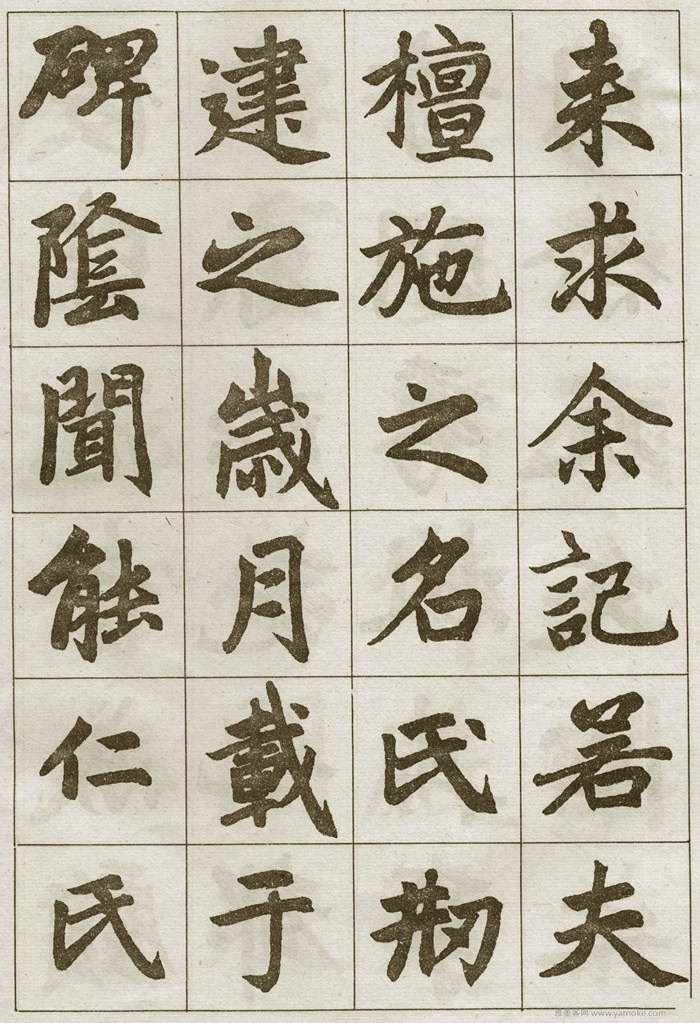 来求余記若夫
檀施之名氏刱
建之歲月載于
碑陰聞能仁氏
雅墨客网 www.yamoke.com